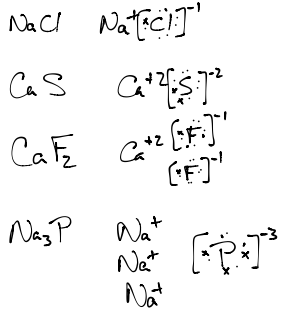 NaCl Na⁺[Cl]⁻¹
CaS Ca⁺²[S]⁻²
CaF₂ Ca⁺² [F]⁻¹
[F]⁻¹
Na₃P Na⁺
Na⁺ [P]⁻³
Na⁺